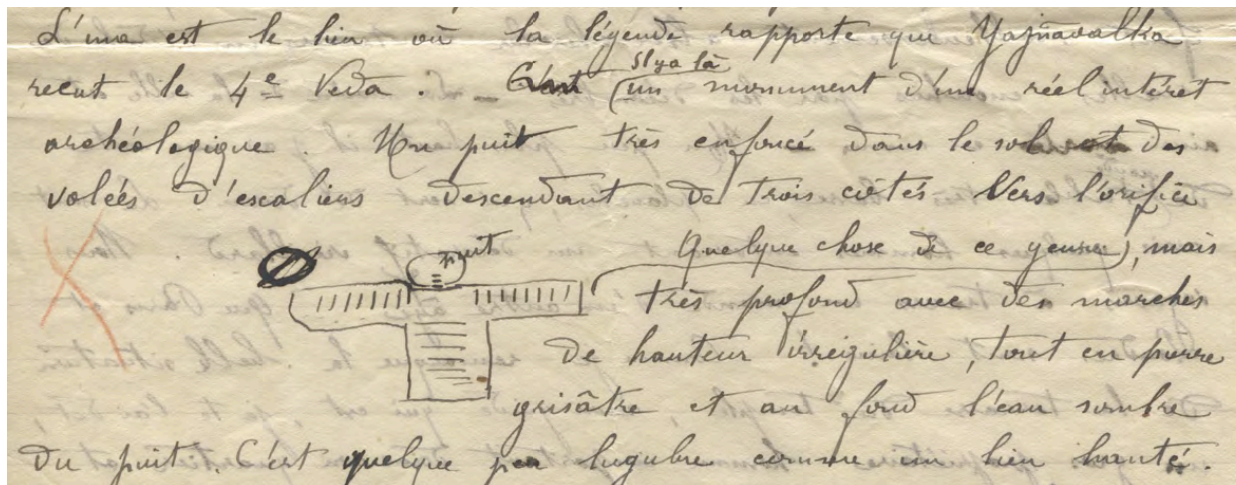 L'une est le lieu où la légende rapporte que Yajñavalka
reçut le 4e Veda. C'est (Il y a là un monument d'un réel intérêt
archéologique. Un puit très enfoncé dans le sol et des
volées d'escaliers descendant de trois côtés vers l'orifice
puit Quelque chose de ce genre), mais
très profond avec des marches
de hauteur irrégulière, tout en pierre
grisâtre et au fond l'eau sombre
du puit. C'est quelque peu lugubre comme un lieu hanté.